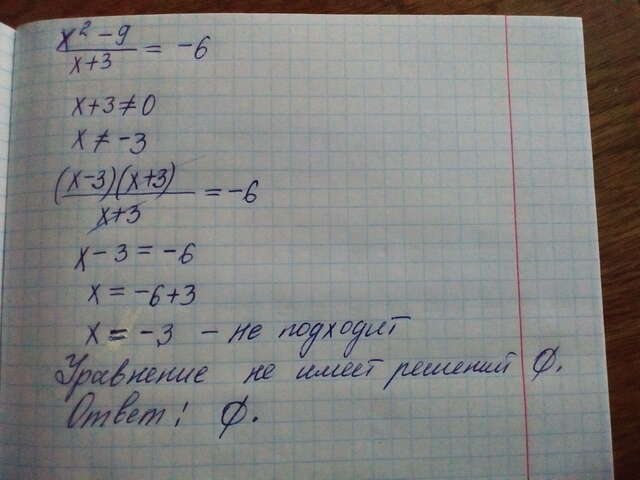 x² - 9 / x+3 = -6
x+3 ≠ 0
x ≠ -3
(x-3)(x+3) / x+3 = -6
x - 3 = -6
x = -6+3
x = -3 - не подходит
Уравнение не имеет решений ∅.
Ответ: ∅.